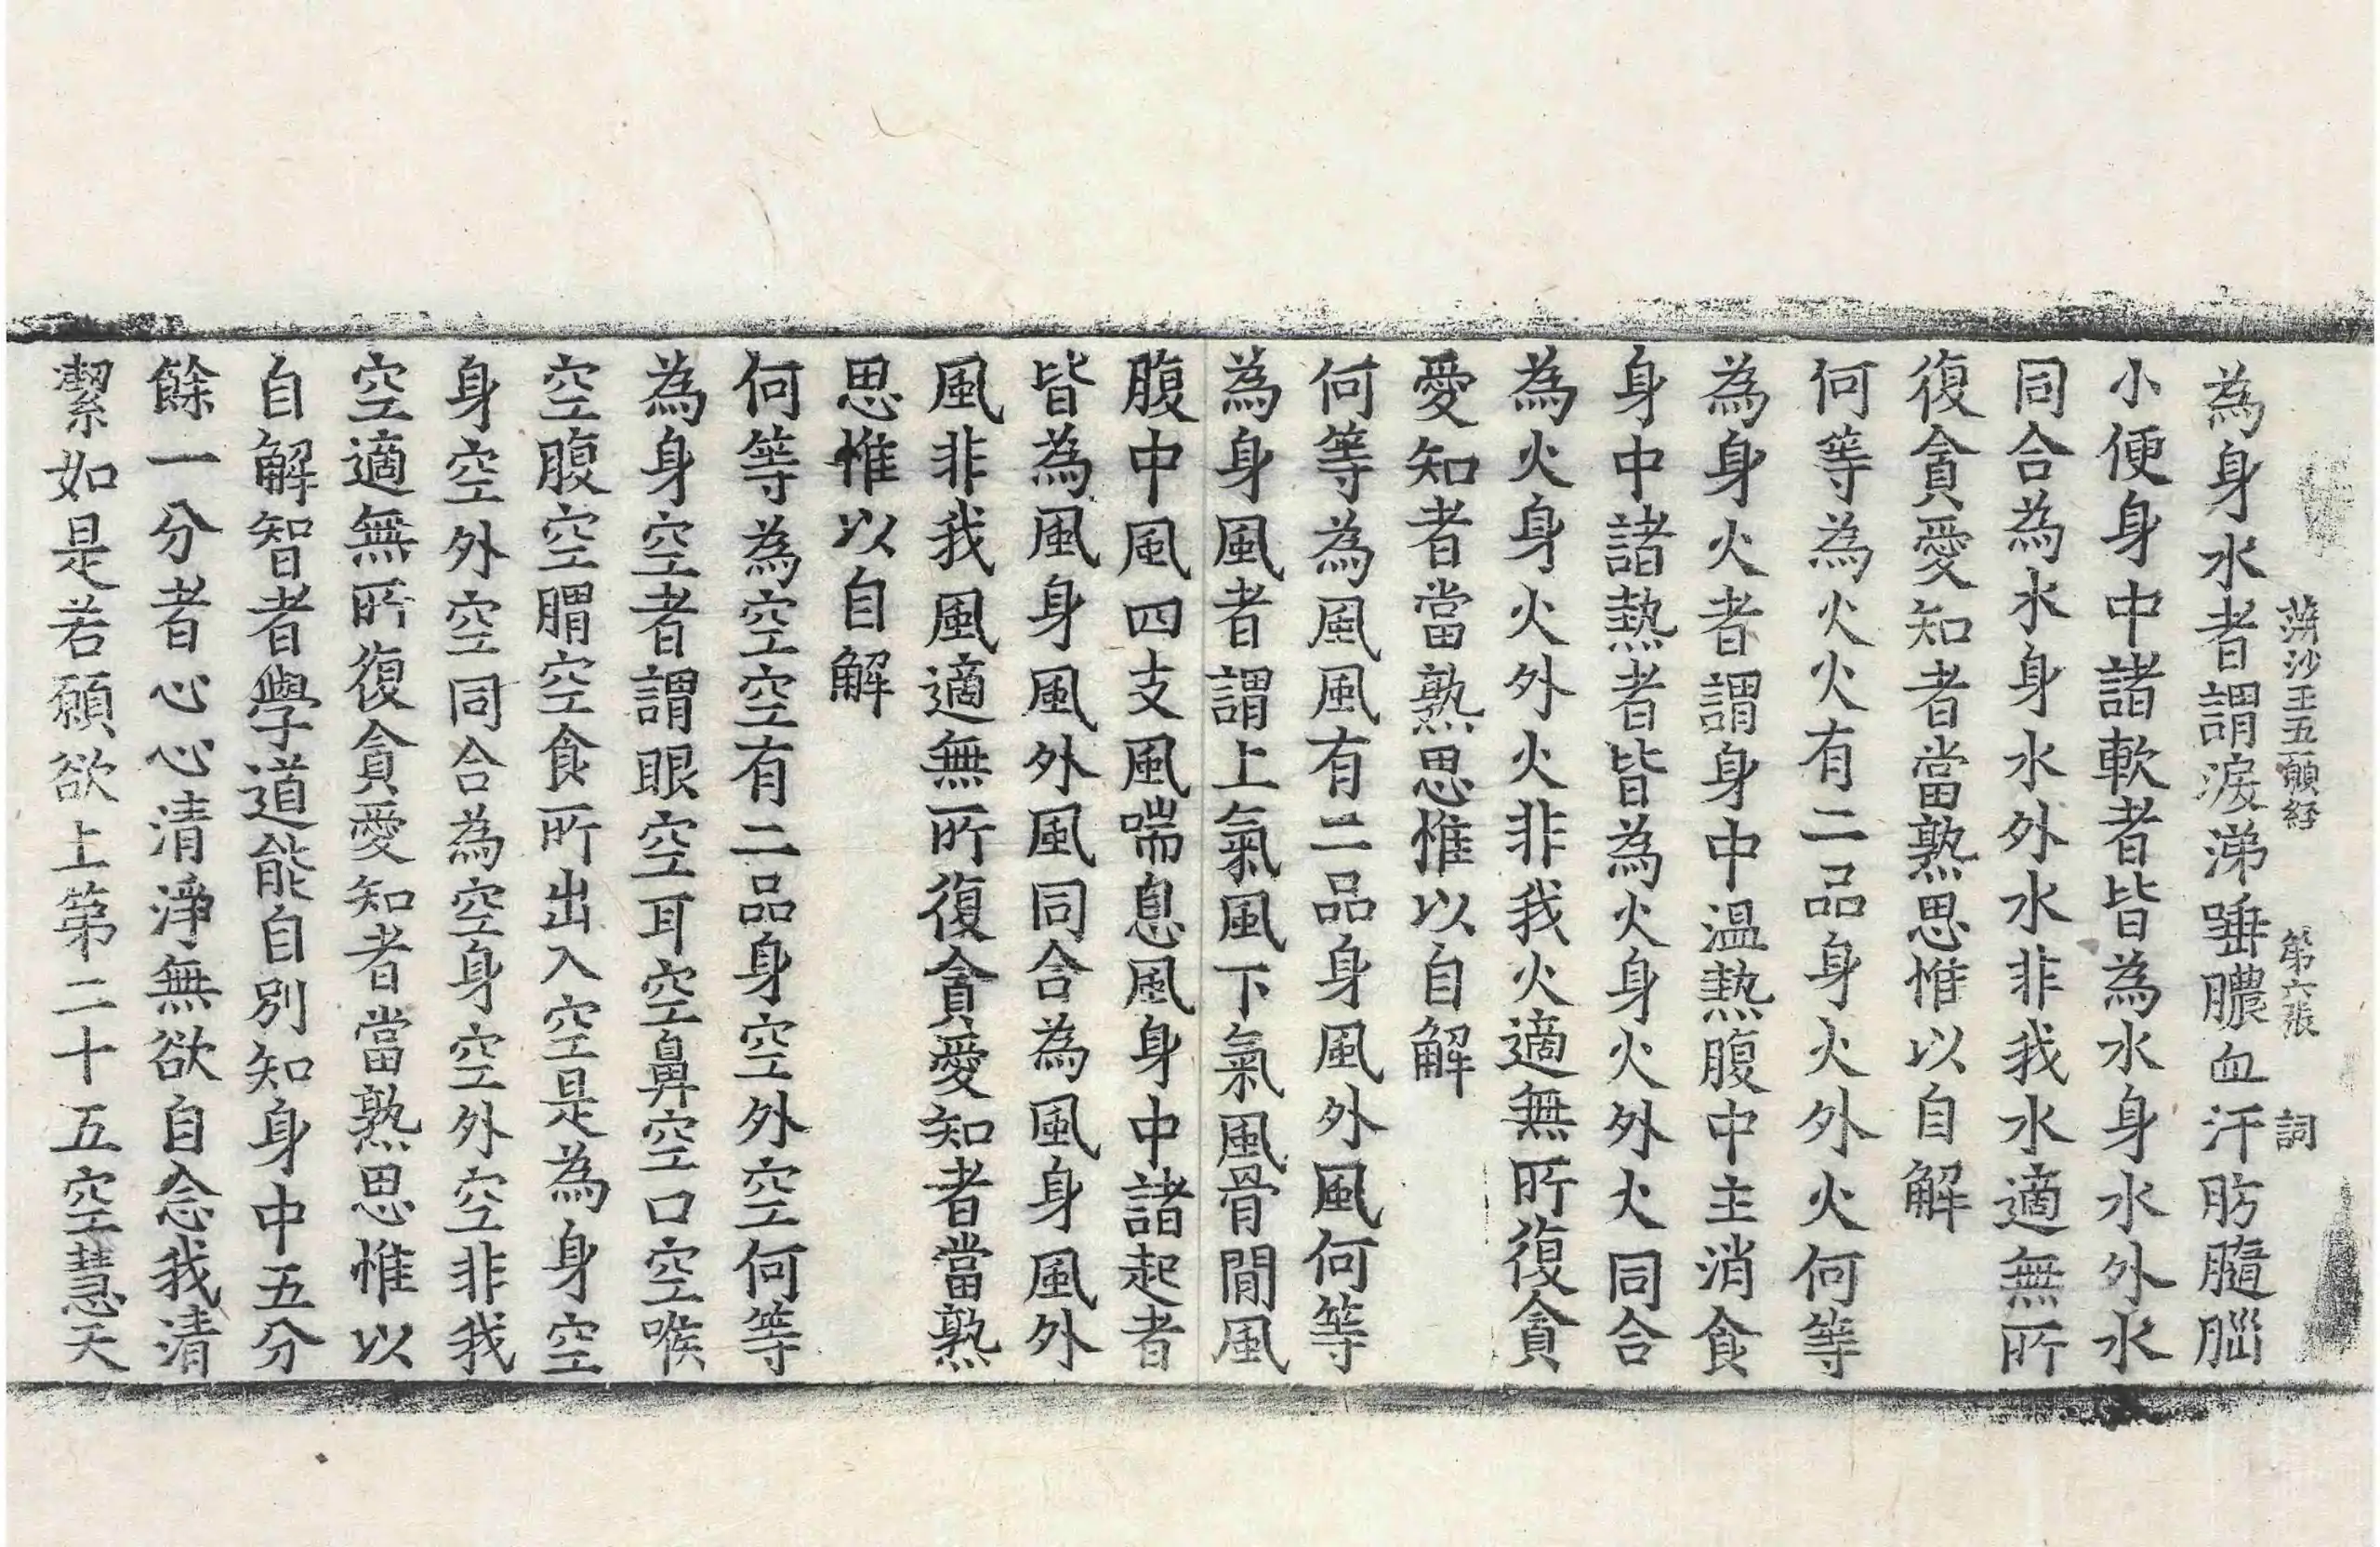 蓱沙王五願経 第六張 詞
為身水者謂淚涕唾膿血汗肪髓腦
小便身中諸軟者皆為水身水外水
同合為水身水外水非我水適無所
復貪愛知者當熟思惟以自解
何等為火火有二品身火外火何等
為身火者謂身中温熱腹中主消食
身中諸熱者皆為火身火外火同合
為火身火外火非我火適無所復貪
愛知者當熟思惟以自解
何等為風風有二品身風外風何等
為身風者謂上氣風下氣風骨間風
腹中風四支風喘息風身中諸起者
皆為風身風外風同合為風身風外
風非我風適無所復貪愛知者當熟
思惟以自解
何等為空空有二品身空外空何等
為身空者謂眼空耳空鼻空口空喉
空腹空胃空食所出入空是為身空
身空外空同合為空身空外空非我
空適無所復貪愛知者當熟思惟以
自解智者學道能自別知身中五分
餘一分者心心清淨無欲自念我清
潔如是若願欲上第二十五空慧天